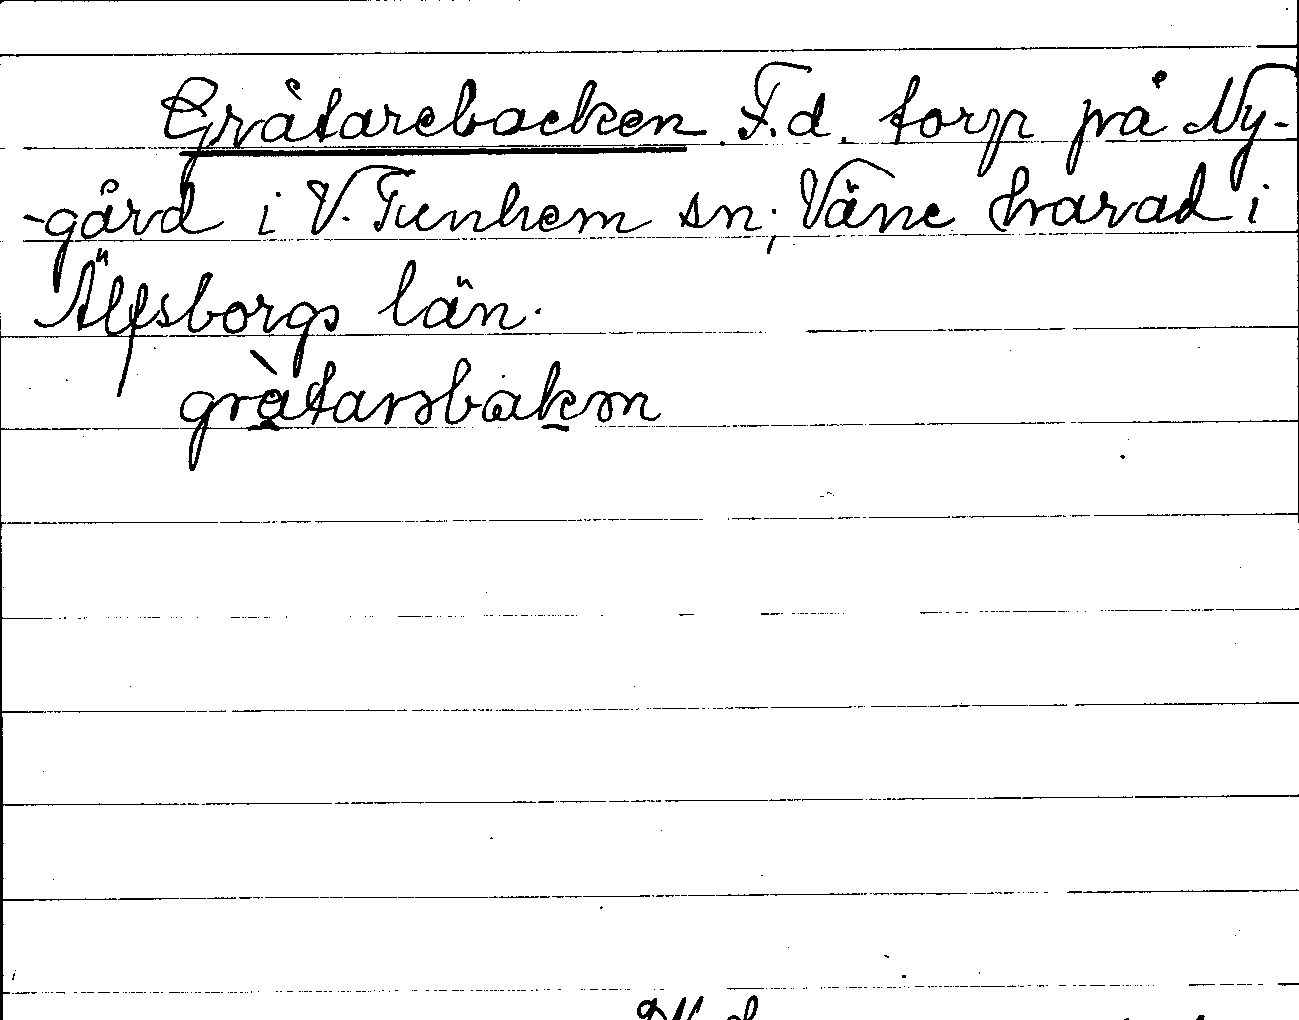 Gråtarebacken. F.d. torp på Ny-
-gård i V. Tunhem sn; Väne härad i
Älfsborgs län.
gràtarəbakən